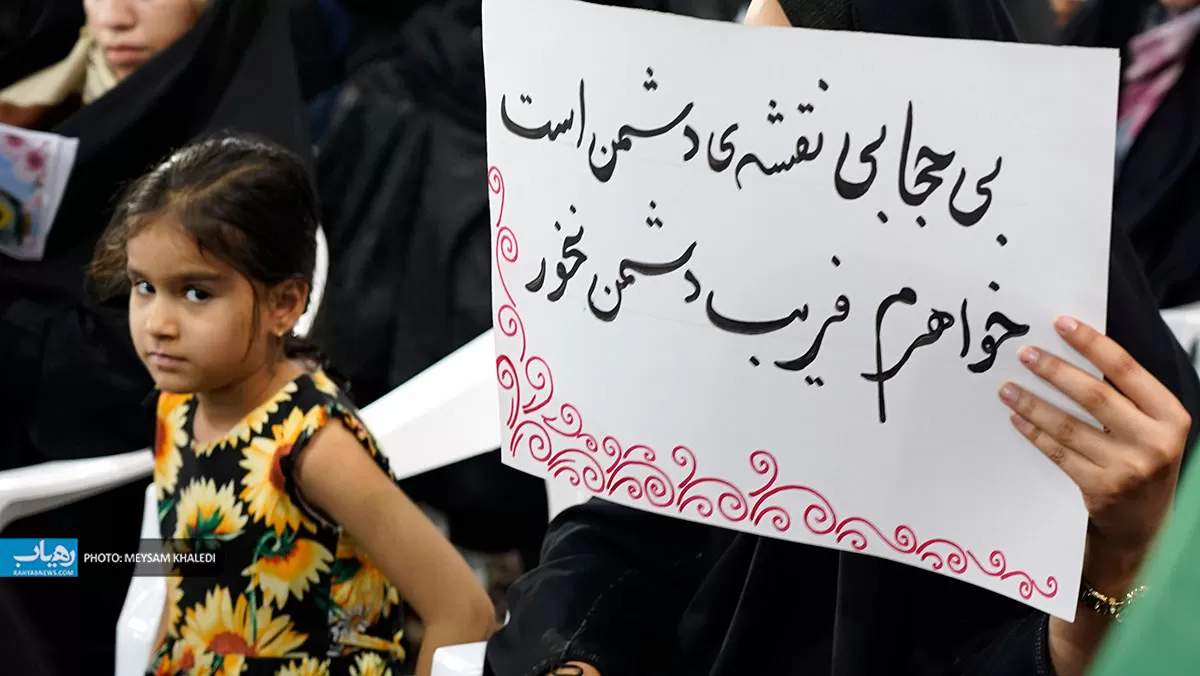 بی حجابی نقشه ی دشمن است
خواهرم فریب دشمن نخور
رهیاب
RAHYABNEWS.COM
PHOTO: MEYSAM KHALEDI